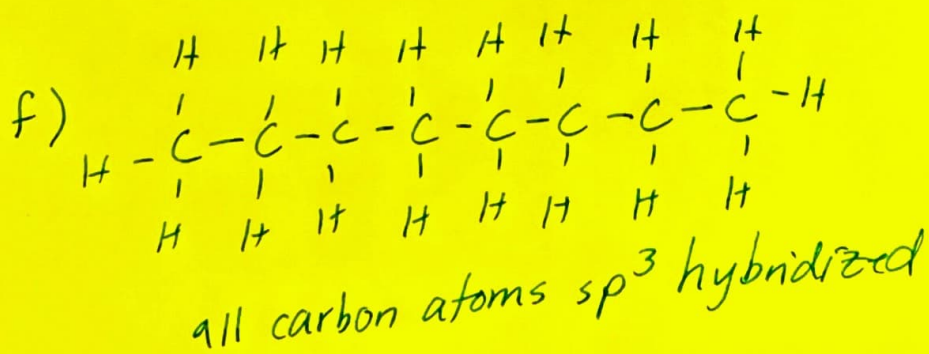 H H H H H H H H
f) H - C - C - C - C - C - C - C - C - H
H H H H H H H H
all carbon atoms sp³ hybridized